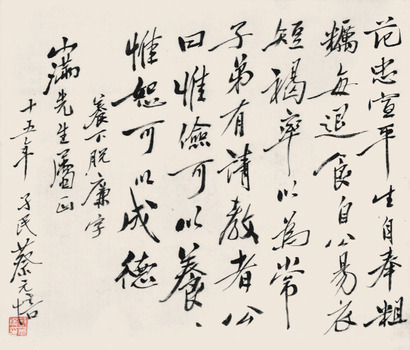 范忠宣平生自奉粗
糲每退食自公易衣
短褐率以為常
子弟有請教者公
曰惟儉可以養、
惟恕可以成德
養下脱廉字
先生屬正
十五年 孑民蔡元培